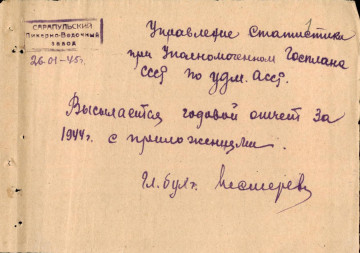 САРАПУЛЬСКИЙ
Ликерно-Водочный
ЗАВОД
26-01-45г.
Управление Статистики
при Уполномоченном Госплана
СССР по Удм. АССР.
Высылается годовой отчет за
1944г. с приложениями.
Гл. бухг.